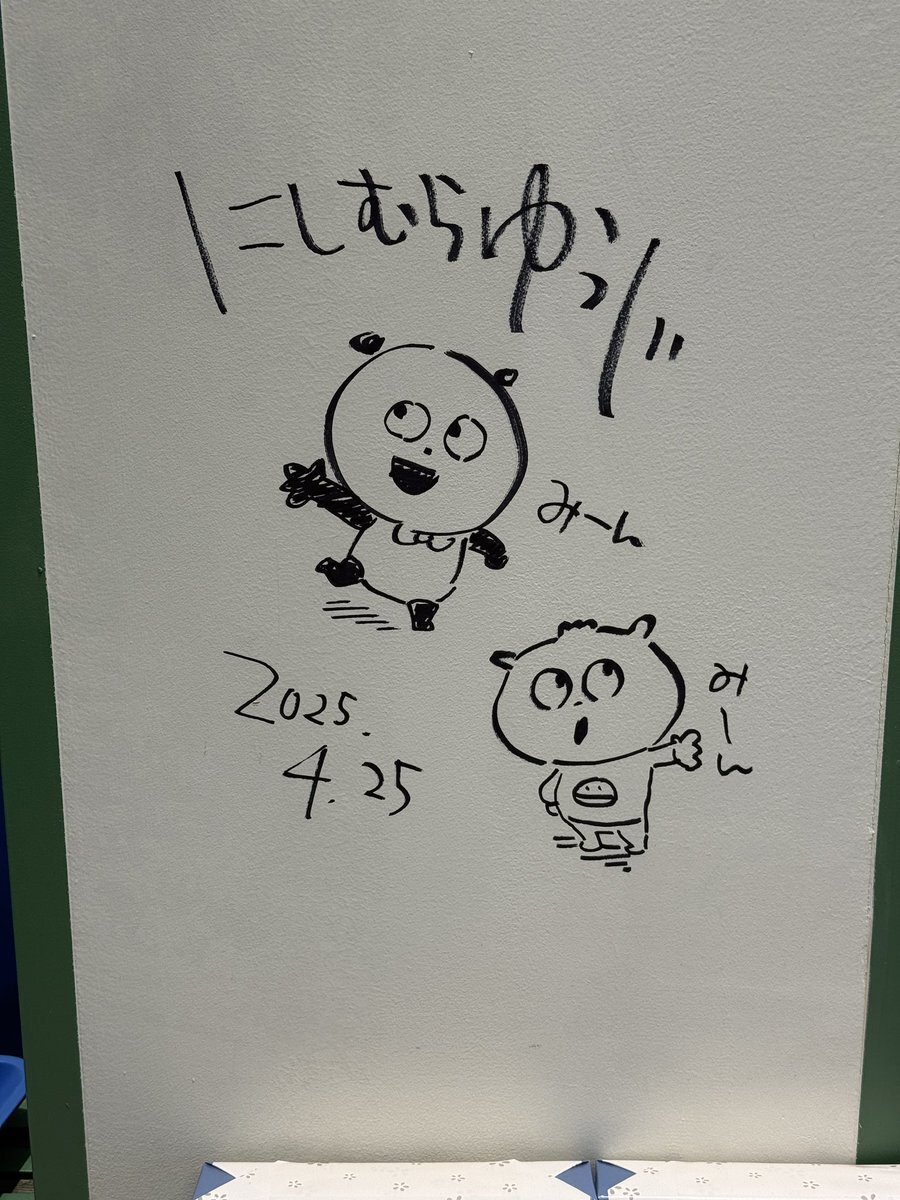 にしむらゆうじ
みーん
みーん
2025.
4.25